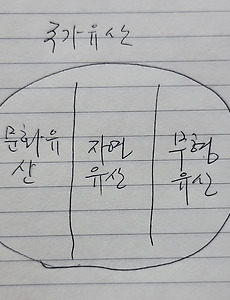 국가유산
문화유
산
자연
유산
무형
유산